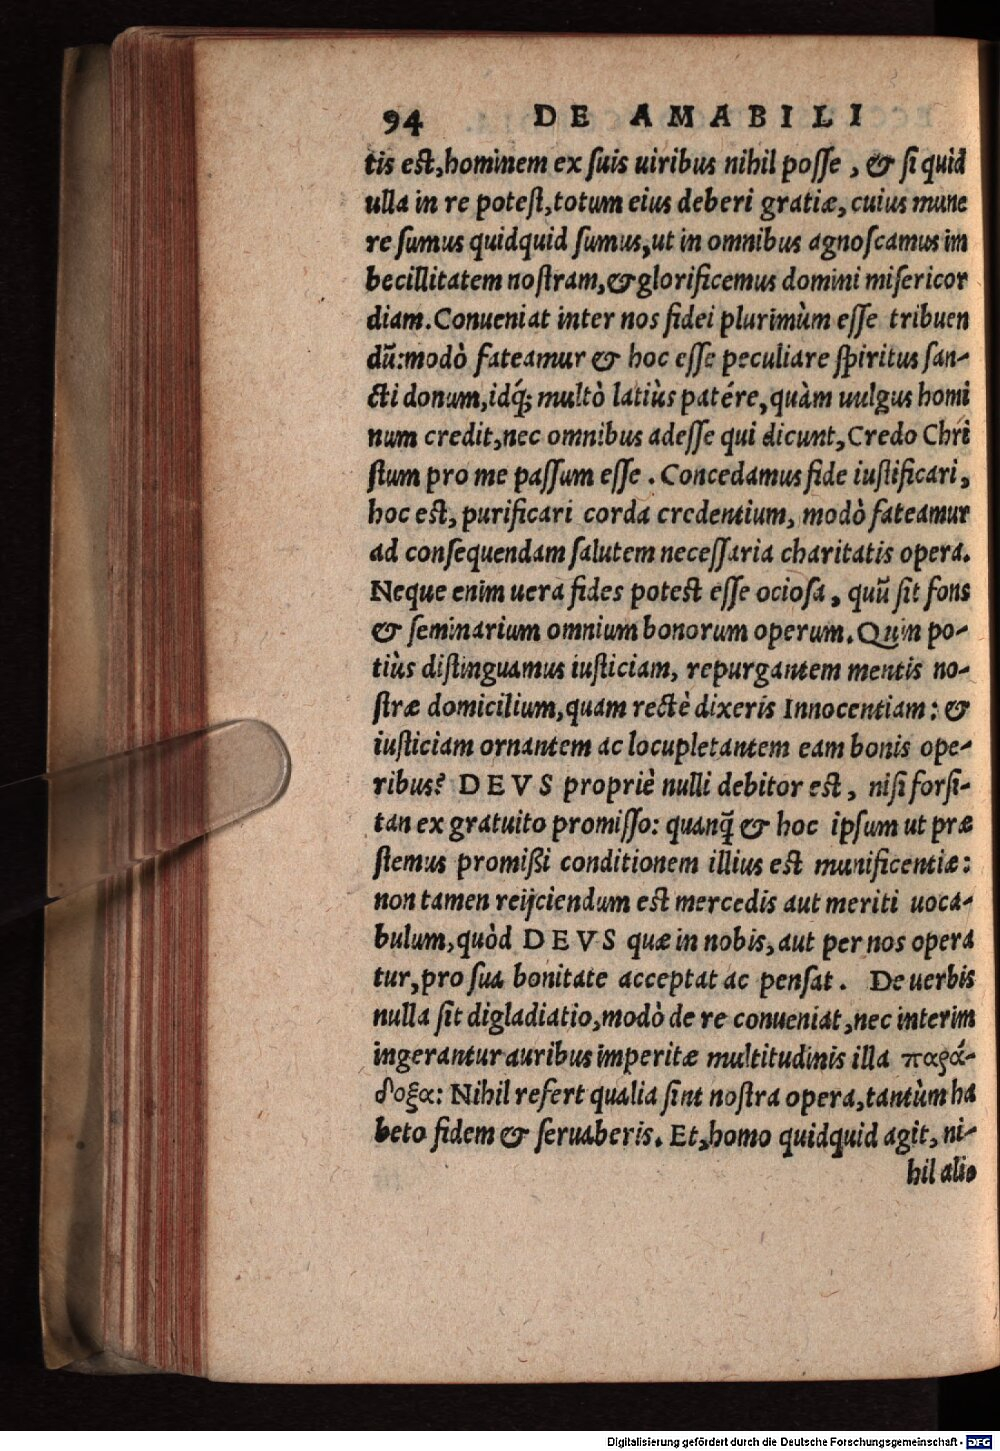 94 DE AMABILI
tis est, hominem ex suis uiribus nihil posse, & si quid
ulla in re potest, totum eius deberi gratiæ, cuius mune
re sumus quidquid sumus, ut in omnibus agnoscamus im
becillitatem nostram, & glorificemus domini misericor
diam. Conueniat inter nos fidei plurimùm esse tribuen
dũ: modò fateamur & hoc esse peculiare spiritus san-
cti donum, idq́; multò latiùs patére, quàm uulgus homi
num credit, nec omnibus adesse qui dicunt, Credo Chri
stum pro me passum esse. Concedamus fide iustificari,
hoc est, purificari corda credentium, modò fateamur
ad consequendam salutem necessaria charitatis opera.
Neque enim uera fides potest esse ociosa, quũ sit fons
& seminarium omnium bonorum operum. Quin po-
tiùs distinguamus iusticiam, repurgantem mentis no-
stræ domicilium, quam rectè dixeris Innocentiam: &
iusticiam ornantem ac locupletantem eam bonis ope-
ribus? DEVS propriè nulli debitor est, nisi forsi-
tan ex gratuito promisso: quanq̃ & hoc ipsum ut præ
stemus promißi conditionem illius est munificentiæ:
non tamen reijciendum est mercedis aut meriti uoca-
bulum, quòd DEVS quæ in nobis, aut per nos opera
tur, pro sua bonitate acceptat ac pensat. De uerbis
nulla sit digladiatio, modò de re conueniat, nec interim
ingerantur auribus imperitæ multitudinis illa παρά-
δοξα: Nihil refert qualia sint nostra opera, tantùm ha
beto fidem & seruaberis. Et, homo quidquid agit, ni-
hil alio
Digitalisierung gefördert durch die Deutsche Forschungsgemeinschaft - DFG